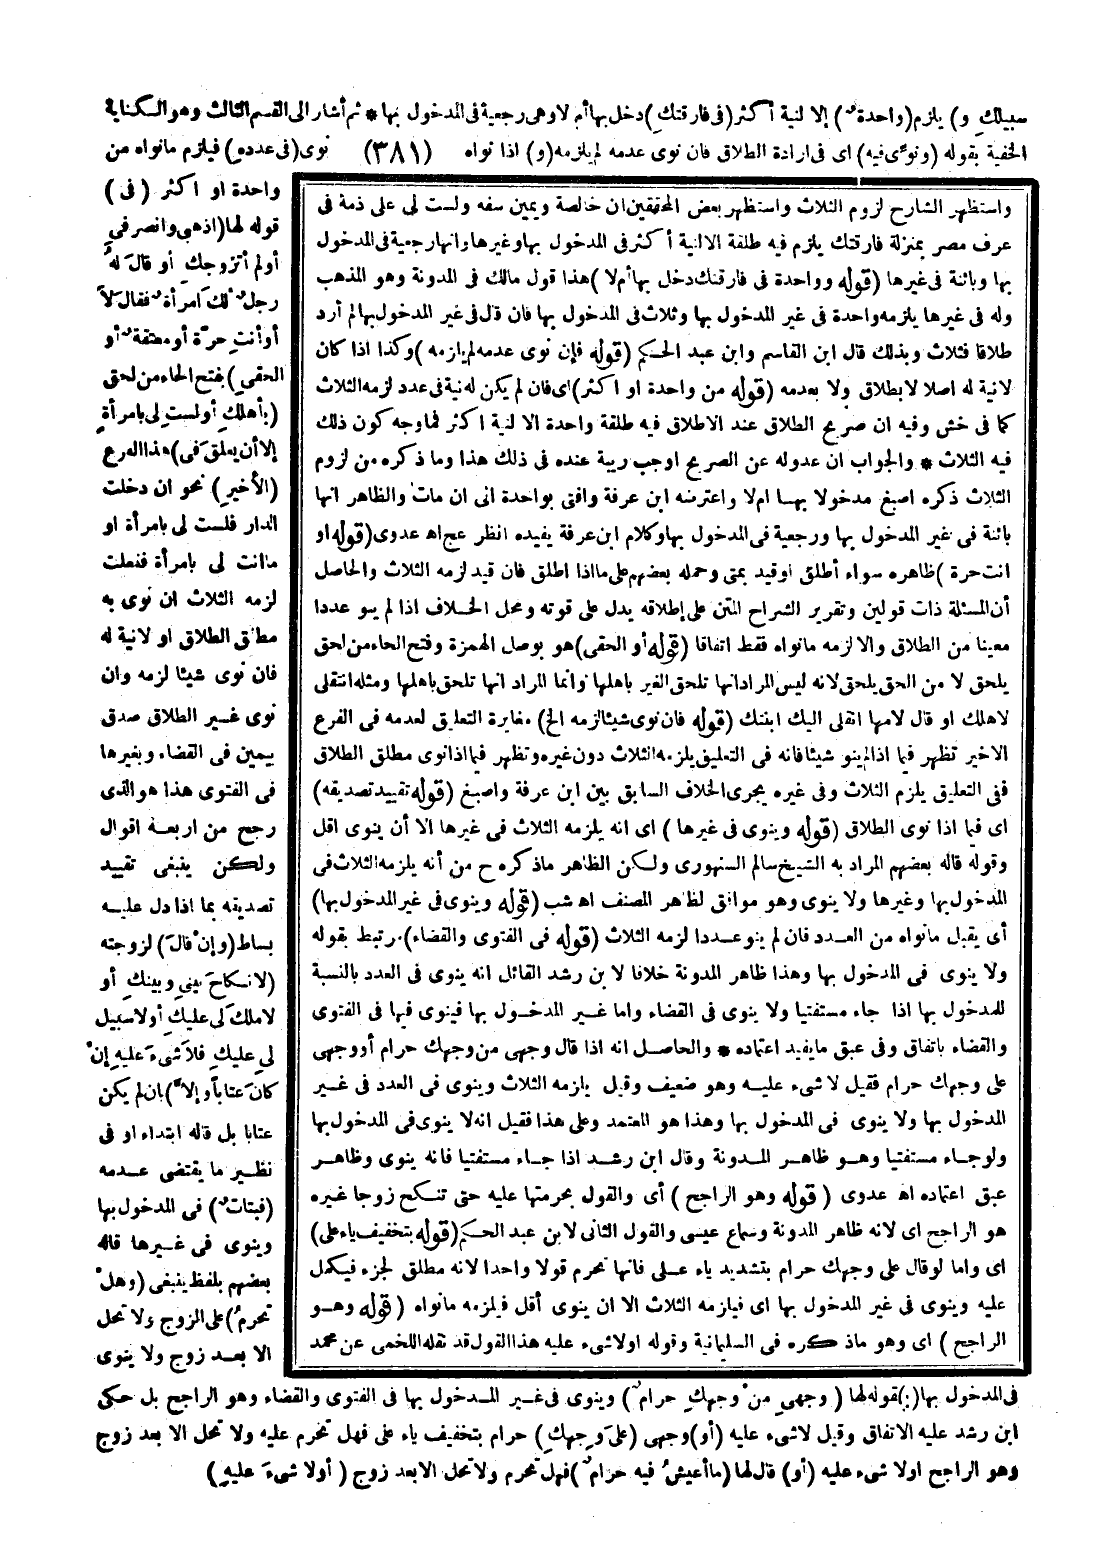 سبيلكِ و) يلزم(واحدةٌ) إلا لنية أكثر(في فارقتكِ)دخل بها أم لا وهي رجعية في المدخول بها * ثم أشار الى القسم الثالث وهو الكناية
الخفية بقوله (ونوّي فيه) اى فى ارادة الطلاق فان نوى عدمه لم يلزمه(و) اذا نواه (٣٨١) نوى(في عدده) فيلزم مانواه من
واحدة او اكثر (في)
قوله لها(اذهبي وانصرفي
أولم أتزوجكِ أو قال لهُ
رجلٌ ألك امرأةٌ فقال لَا
أوأنتِ حرّة أو معتقةٌ أو
الحقي)بفتح الحاء من لحق
(بأهلكِ أولستِ لي بامرأةٍ
إلا أن يعلق في)هذا الفرع
(الأخير) نحو ان دخلت
الدار فلست لى بامرأة او
ماانت لى بامرأة ففعلت
لزمه الثلاث ان نوى به
مطلق الطلاق او لانية له
فان نوى شيئا لزمه وان
نوى غير الطلاق صدق
بيمين فى القضاء وبغيرها
فى الفتوى هذا هو الذى
رجح من اربعة اقوال
ولكن ينبغى تقييد
تصديقه بما اذا دل عليه
بساط(وإنْ قالَ) لزوجته
(لانكاحَ بيني وبينكِ أو
لاملكَ لي عليكِ أو لاسبيل
لي عليكِ فلاَ شيءَ عليهِ إنْ
كانَ عتاباً وإلاّ)بان لم يكن
عتابا بل قاله ابتداء او فى
نظير ما يقتضى عدمه
(فبتاتٌ) فى المدخول بها
وينوى فى غيرها قاله
بعضهم بلفظ ينبغى (وهلْ
تحرمُ)على الزوج ولا تحل
الا بعد زوج ولا ينوى
واستظهر الشارح لزوم الثلاث واستظهر بعض المحققين ان خالصة ويمين سفه ولست لى على ذمة فى
عرف مصر بمنزلة فارقتك يلزم فيه طلقة الا لنية أكثر فى المدخول بها وغيرها وانها رجعية فى المدخول
بها وبائنة فى غيرها (قوله وواحدة فى فارقتك دخل بها أم لا)هذا قول مالك فى المدونة وهو المذهب
وله فى غيرها يلزمه واحدة فى غير المدخول بها وثلاث فى المدخول بها فان قال فى غير المدخول بها لم أرد
طلاقا فثلاث وبذلك قال ابن القاسم وابن عبد الحكم (قوله فإن نوى عدمه لم يلزمه)وكذا اذا كان
لانية له اصلا لا بطلاق ولا بعدمه (قوله من واحدة او اكثر)اى فان لم يكن له نية فى عدد لزمه الثلاث
كما فى خش وفيه ان صريح الطلاق عند الاطلاق فيه طلقة واحدة الا لنية اكثر فما وجه كون ذلك
فيه الثلاث * والجواب ان عدوله عن الصريح اوجب ريبة عنده فى ذلك هذا وما ذكره من لزوم
الثلاث ذكره اصبغ مدخولا بها ام لا واعترضه ابن عرفة وافتى بواحدة انى ان مات والظاهر انها
بائنة فى غير المدخول بها ورجعية فى المدخول بها وكلام ابن عرفة يفيده انظر عج اه عدوى(قوله او
انت حرة)ظاهره سواء أطلق اوقيد بمتى وحمله بعضهم على مااذا اطلق فان قيد لزمه الثلاث والحاصل
أن المسئلة ذات قولين وتقرير الشراح المتن على إطلاقه يدل على قوته ومحل الخلاف اذا لم ينو عددا
معينا من الطلاق والا لزمه مانواه فقط اتفاقا (قوله أو الحقى)هو بوصل الهمزة وفتح الحاء من لحق
يلحق لا من الحق يلحق لانه ليس المراد انها تلحق الغير باهلها وانما المراد انها تلحق باهلها ومثله انتقلى
لاهلك او قال لامها انقلى اليك ابنتك (قوله فان نوى شيئا لزمه الخ) مغايرة التعليق لعدمه فى الفرع
الاخير تظهر فيما اذا لم ينو شيئا فانه فى التعليق يلزمه الثلاث دون غيره وتظهر فيما اذا نوى مطلق الطلاق
ففى التعليق يلزم الثلاث وفى غيره يجرى الخلاف السابق بين ابن عرفة واصبغ (قوله تقييد تصديقه)
اى فيما اذا نوى الطلاق (قوله وينوى فى غيرها) اى انه يلزمه الثلاث فى غيرها الا أن ينوى اقل
وقوله قاله بعضهم المراد به الشيخ سالم السنهورى ولكن الظاهر ماذكره ح من أنه يلزمه الثلاث فى
المدخول بها وغيرها ولا ينوى وهو موافق لظاهر المصنف اه شب (قوله وينوى فى غير المدخول بها)
أى يقبل مانواه من العدد فان لم ينو عددا لزمه الثلاث (قوله فى الفتوى والقضاء)مرتبط بقوله
ولا ينوى فى المدخول بها وهذا ظاهر المدونة خلافا لا بن رشد القائل انه ينوى فى العدد بالنسبة
للمدخول بها اذا جاء مستفتيا ولا ينوى فى القضاء واما غير المدخول بها فينوى فيها فى الفتوى
والقضاء باتفاق وفى عبق مايفيد اعتماده * والحاصل انه اذا قال وجهى من وجهك حرام أو وجهى
على وجهك حرام فقيل لا شىء عليه وهو ضعيف وقيل يلزمه الثلاث وينوى فى العدد فى غير
المدخول بها ولا ينوى فى المدخول بها وهذا هو المعتمد وعلى هذا فقيل انه لا ينوى فى المدخول بها
ولو جاء مستفتيا وهو ظاهر المدونة وقال ابن رشد اذا جاء مستفتيا فانه ينوى وظاهر
عبق اعتماده اه عدوى (قوله وهو الراجح) أى والقول بحرمتها عليه حتى تنكح زوجا غيره
هو الراجح اى لانه ظاهر المدونة وسماع عيسى والقول الثانى لا بن عبد الحكم(قوله بتخفيف ياء على)
اى واما لو قال على وجهك حرام بتشديد ياء على فانها تحرم قولا واحدا لانه مطلق لجزء فيكمل
عليه وينوى فى غير المدخول بها اى فيلزمه الثلاث الا ان ينوى أقل فيلزمه مانواه (قوله وهو
الراجح) اى وهو ماذكره فى السليمانية وقوله اولا شىء عليه هذا القول قد نقله اللخمى عن محمد
فى المدخول بها(:)قوله لها (وجهي منْ وجهكِ حرامٌ) وينوى فى غير المدخول بها فى الفتوى والقضاء وهو الراجح بل حكى
ابن رشد عليه الاتفاق وقيل لا شىء عليه (أو)وجهى (علىَ وجهكِ) حرام بتخفيف ياء على فهل تحرم عليه ولا تحل الا بعد زوج
وهو الراجح اولا شىء عليه (أو) قال لها (ماأعيشُ فيه حرامٌ)فهل تحرم ولا تحل الا بعد زوج (أولا شيءَ عليهِ)